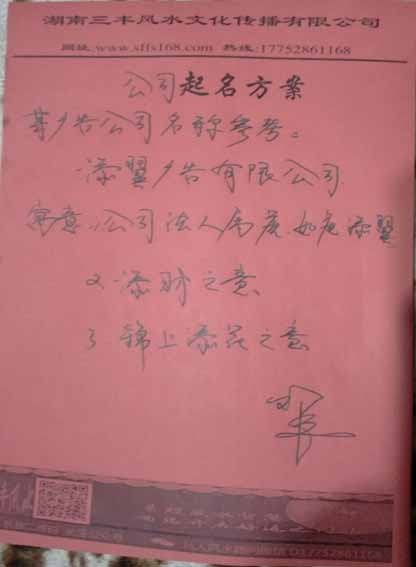 湖南三丰风水文化传播有限公司
网址:www.sffs168.com 热线:17752861168
公司起名方案
某广告公司名称参考。
添翼广告有限公司
寓意1,公司法人属虎,如虎添翼
2、添财之意
3 锦上添花之意